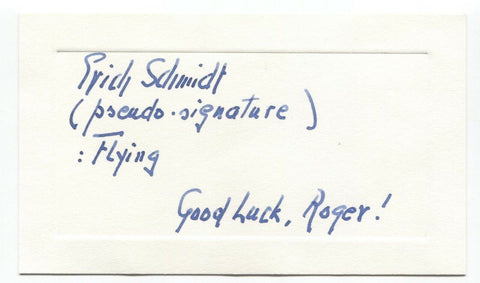 Erich Schmidt
(pseudo-signature)
: Flying
Good Luck, Roger!